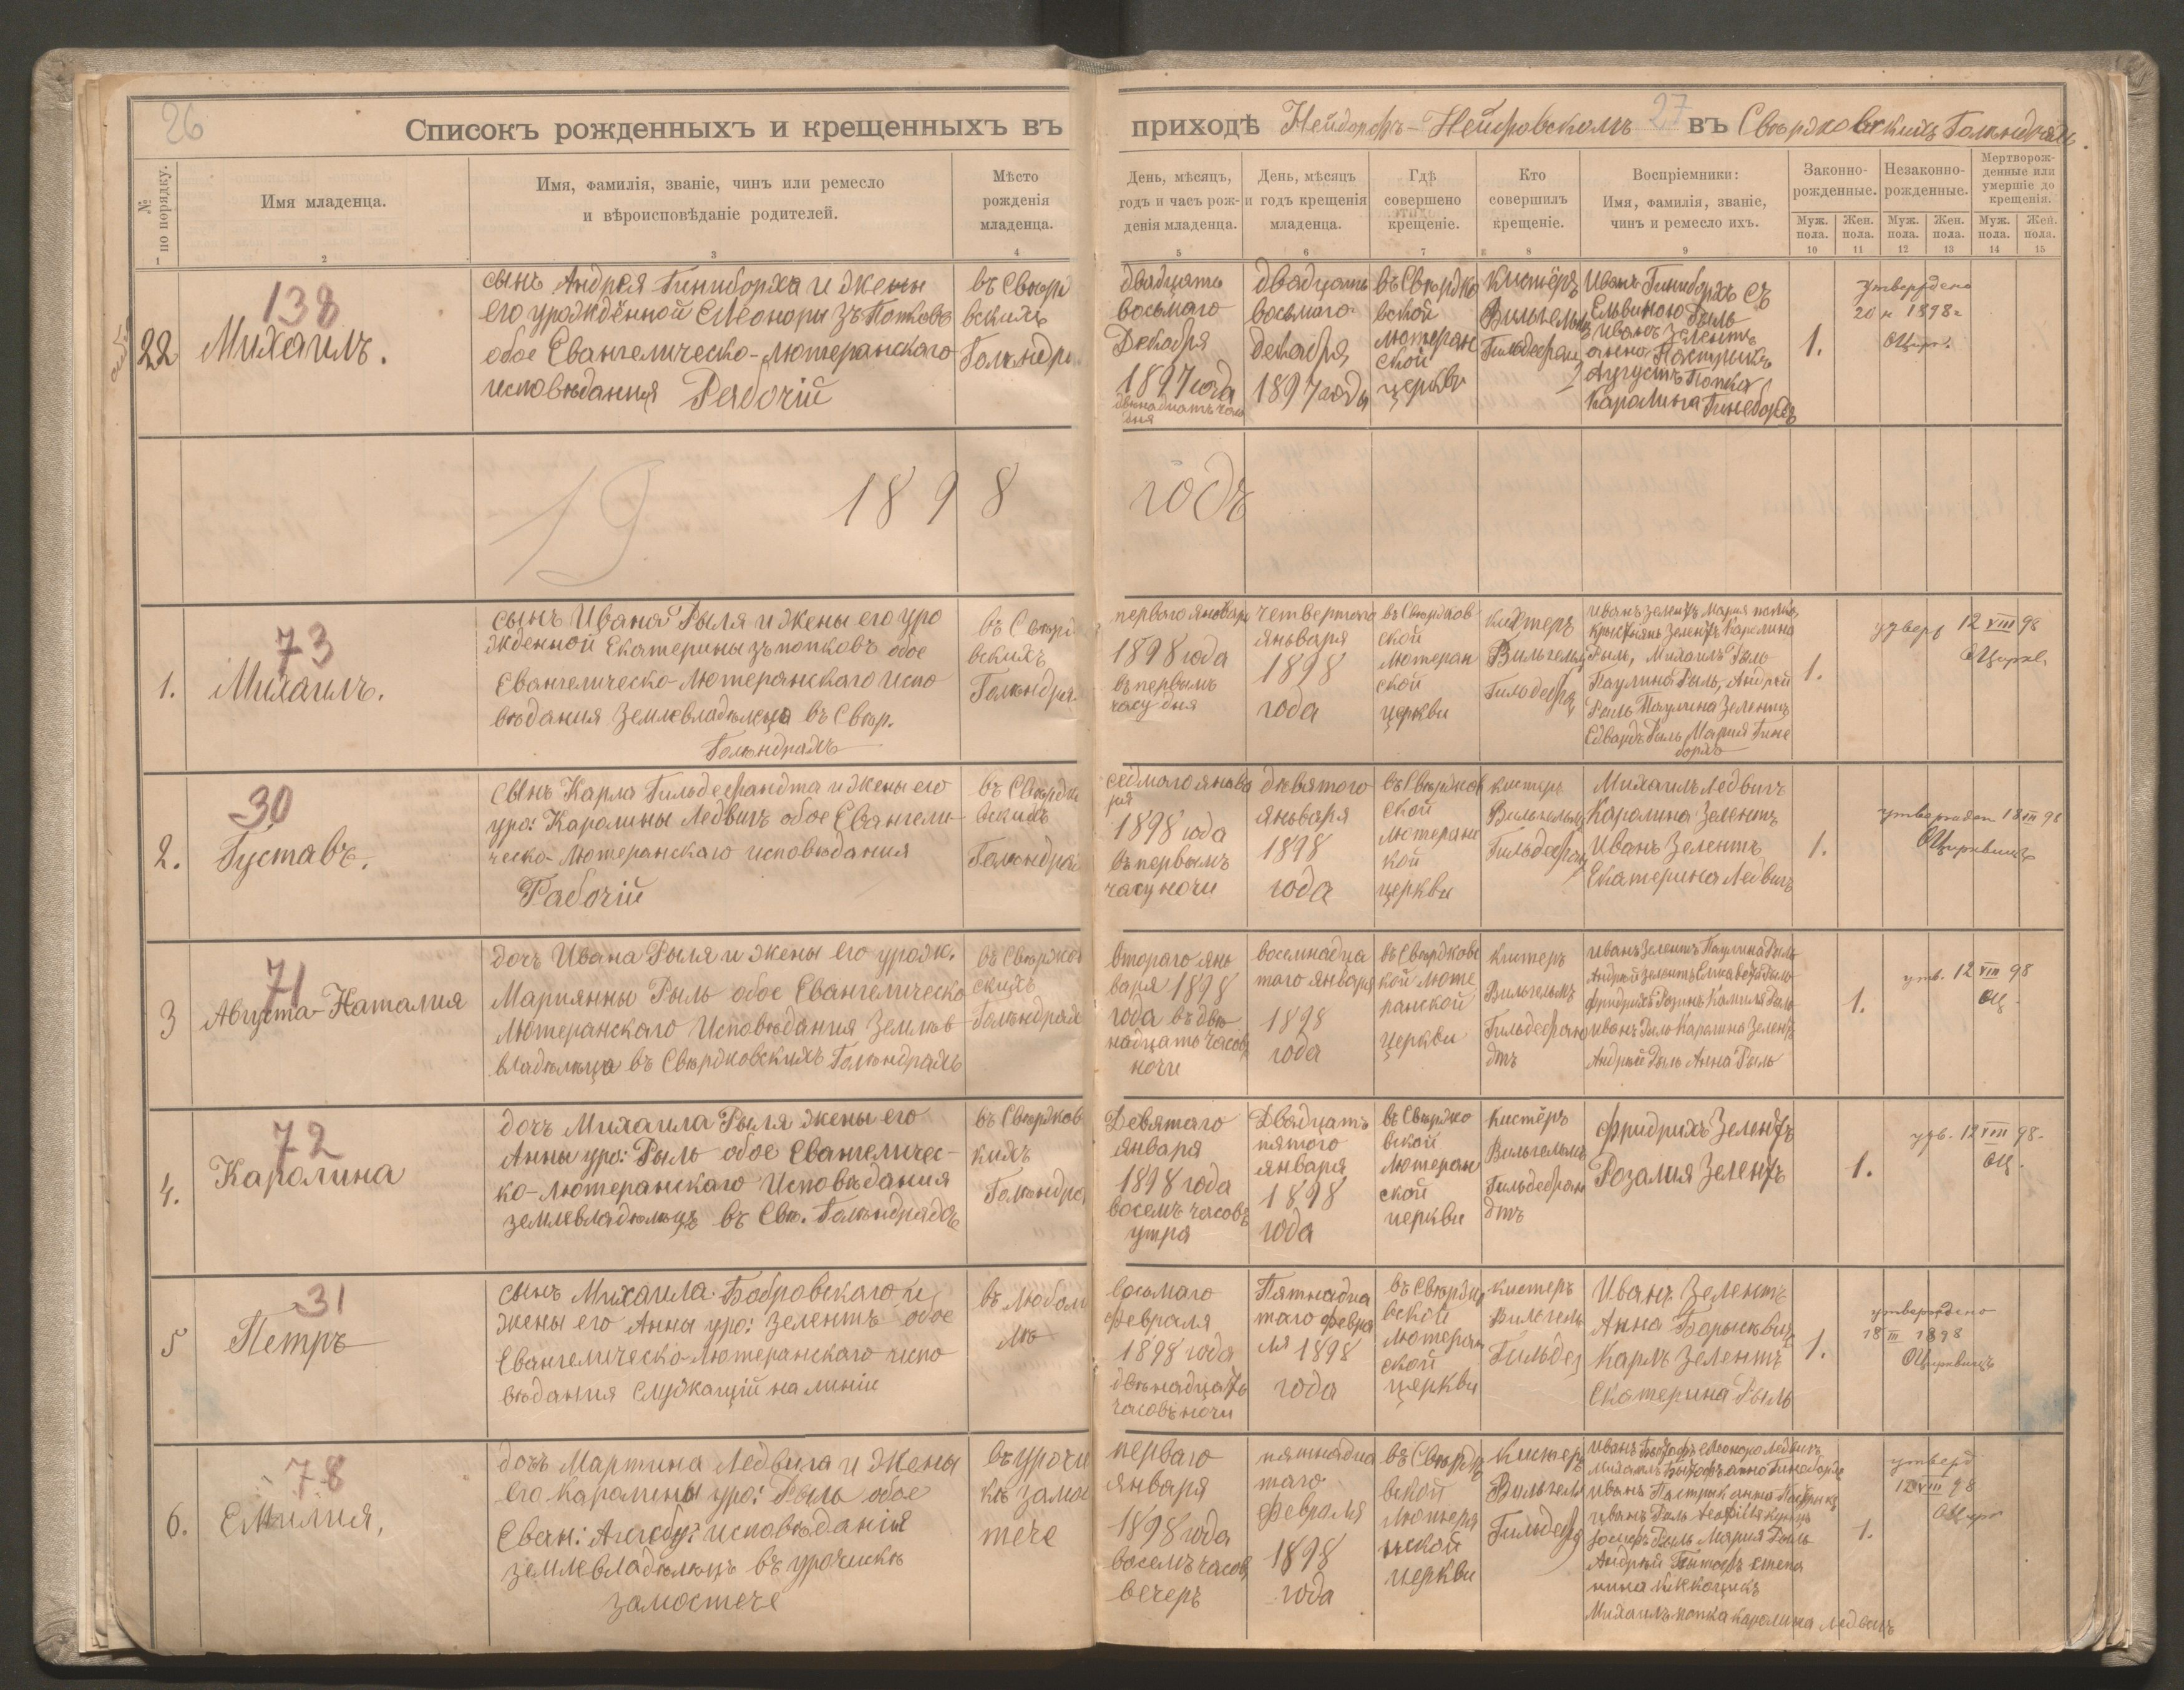 26
Списокъ рожденныхъ и крещенныхъ въ
приходѣ Нейдорфъ-Нейбровскомъ 27 въ Свѣржовскихъ Голендрахъ.
№ по порядку.
Имя младенца.
Имя, фамилія, званіе, чинъ или ремесло
и вѣроисповѣданіе родителей.
Мѣсто
рожденія
младенца.
День, мѣсяцъ,
годъ и часъ рож-
денія младенца.
День, мѣсяцъ
и годъ крещенія
младенца.
Гдѣ
совершено
крещеніе.
Кто
совершилъ
крещеніе.
Воспріемники:
Имя, фамилія, званіе,
чинъ и ремесло ихъ.
Законно-
рожденные.
Незаконно-
рожденные.
Мертворож-
денные или
умершіе до
крещенія.
Муж. пола.
Жен. пола.
Муж. пола.
Жен. пола.
Муж. пола.
Жен. пола.
1 2 3 4 5 6 7 8 9 10 11 12 13 14 15
22
138
Михаилъ.
сынъ Андрея Гиниборха и жены
его урождённой Елеоноры зъ Попковъ
обое Евангелическо-лютеранскаго
исповѣдания Рабочій
въ Свѣрж
вскихъ
Голѣндра
двадцять
восьмаго
Декабря
1897 года
двѣнадцать часо
дня
двадцать
восьмаго
декабря
1897 года
въ Свѣржо
вской
лютеран
ской
церкви
Кистёръ
Вильгельм
Гильдебран
Иванъ Гиниборхъ съ
Ельвиною Рыль
Иванъ Зелентъ
анна Пастрикъ
Августъ Попка
Каролина Гинеборхъ
1.
утверждено
20 н 1898 г
1898
годъ
1.
73
Михаилъ.
сынъ Ивана Рыля и жены его уро
жденной Екатерины зъ попковъ обое
Евангелическо-Лютеранскаго испо
вѣдания Землевладѣлеца въ Свѣр.
Голѣндрахъ
въ Свѣрж
вскихъ
Голѣндрах
перваго январи
1898 года
въ первымъ
часу дня
четвертаго
яньваря
1898
года
въ Свѣржов
ской
Лютеран
ской
церкви
кистеръ
Вильгельм
Гильдебра
Иванъ Зелентъ Мария попка
крыстьянъ Зелентъ Каролина
Рыль, Михаилъ Рыль
Паулина Рыль, Андрей
Рыль Паулина Зелентъ
Едвардъ Рыль Мария Гине
борхъ
1.
утверж 12 VIII 98
2.
30
Густавъ.
сынъ Карла Гильдебрандта и жены его
уро: Каролины Ледвигъ обое Евангели-
ческо-Лютеранскаго исповѣдания
Рабочій
въ Свѣржо
вскихъ
Голѣндрах
седмаго янва
ря
1898 года
въ первымъ
часу ночи
дѣвятого
яньваря
1898
года
въ Свѣржов
ской
лютеранс
кой
церкви
кистеръ
Вильгельм
Гильдебран
Михаилъ Ледвигъ
Каролина Зелентъ
Иванъ Зелентъ
Екатерина Ледвигъ
1.
утвержден 18 III 98
3
71
Августа-Наталия
дочь Ивана Рыля и жены его урожд.
Марианны Рыль обое Евангелическо
Лютеранскаго Исповѣдания Землев-
владѣльца въ Свѣржовскихъ Голѣндрахъ
въ Свѣржов
скихъ
Голѣндрах
втораго янь
варя 1898
года въ двѣ
надцать часовъ
ночи
восемнадца
таго января
1898
года
въ Свѣржовс
кой люте
ранской
церкви
кистеръ
Вильгельмъ
Гильдебран
дтъ
Иванъ Зелентъ Паулина Рыль
Андрей Зелентъ Елисавета Рыль
Иванъ Рыль Каролина Зелентъ
Андрей Рыль Анна Рыль
1.
утв. 12 VIII 98
ОЦ.
4.
72
Каролина
дочь Михаила Рыля жены его
Анны уро: Рыль обое Евангеличес-
ко-лютеранскаго Исповѣдания
землевладѣльцъ въ Свѣ. Голѣндрахъ
въ Свѣржов
кихъ
Голѣндрах
Девятаго
января
1898 года
восемъ часовъ
утра
Двадцать
пятого
января
1898
года
въ Свѣржо
вской
Лютеран
ской
церкви
Кистёръ
Вильгельмъ
Гильдебран
дтъ
Фридрихъ Зелентъ
Розалия Зелентъ
1.
утв. 12 VIII 98.
ОЦ.
5
31
Петръ
сынъ Михаила Бобровскаго и
жены его Анны уро: Зелентъ обое
Евангелическо-лютеранскаго испо
вѣдания Служащій на линіи
въ Любом
лѣ
восьмаго
Февраля
1898 года
двѣнадцать
часовъ ночи
Пятнадца
таго Февра
ля 1898
года
въ Свѣржо
вской
Лютеран
ской
церкви
кистеръ
Вильгельм
Гильдеб
Иванъ Зелентъ
Анна Борысевичъ
Карлъ Зелентъ
Екатерина Рыль
1.
утверждено
18 III 1898
6.
78
Емилия,
дочь Мартина Ледвига и жены
его Каролины уро: Рыль обое
Еван: Аугсбу: исповѣданія
землевладѣльцъ въ урочискѣ
замостече
въ урочи
кѣ замос
тече
перваго
января
1898 года
восемъ часов
вечеръ
пятнадца
таго
февраля
1898
года
въ Свѣрж
вской
Лютера
нской
церкви
Кистеръ
Вильгельм
Гильдебр
Михаилъ попка Каролина Ледвигъ
1.
утверд
12 VIII 98